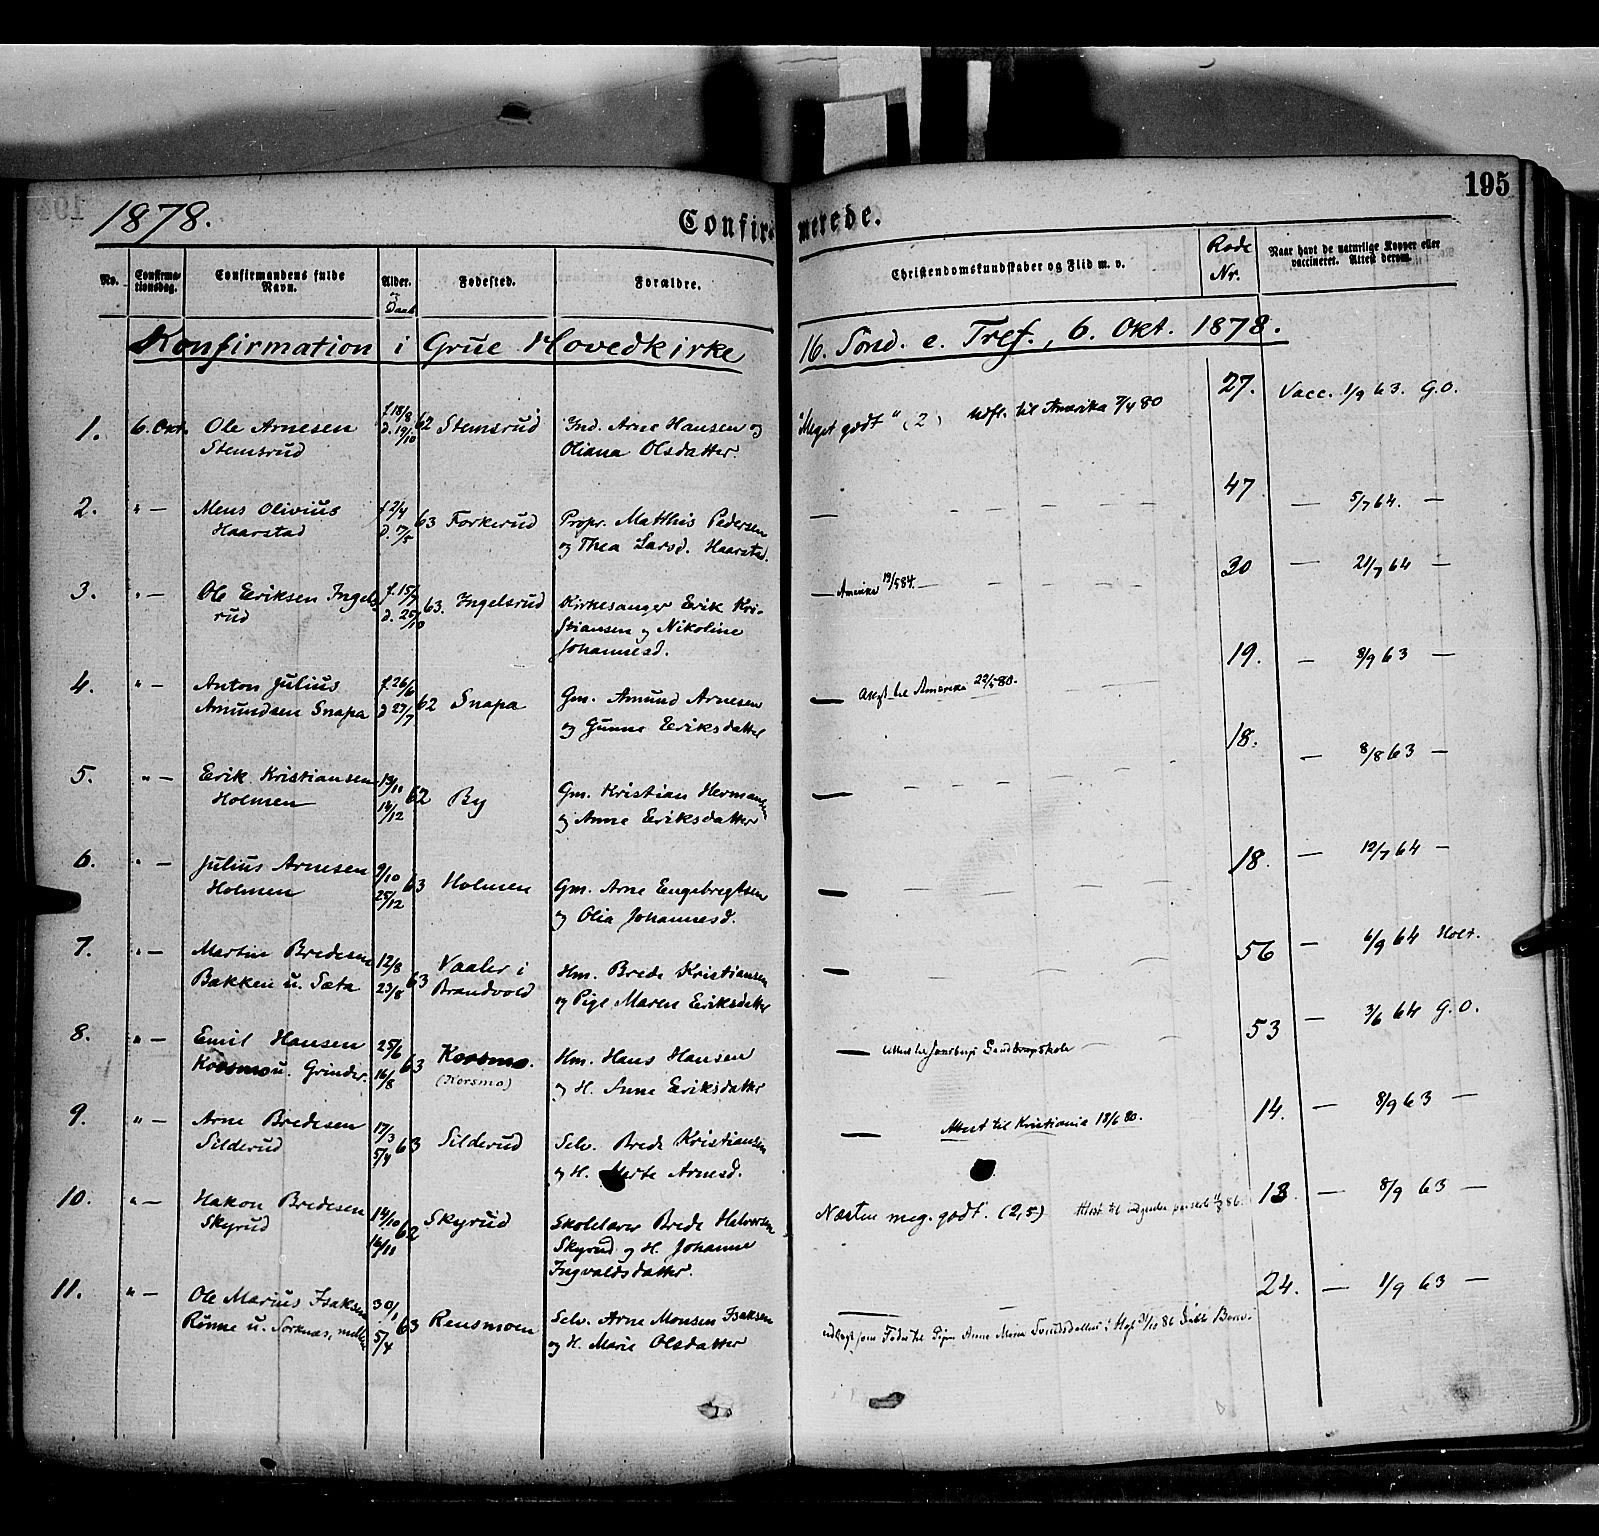 195
1878.
Confirmerede.
No.
Confirmationsdag.
Confirmandens fulde Navn.
Alder. og Daab
Fødested.
Forældre.
Christendomskundskaber og Flid m. v.
Rode Nr.
Naar havt de naturlige Kopper eller vaccineret. Attest derom.
Konfirmation i Grue Hovedkirke 16. Sønd. e. Tref., 6. Okt. 1878.
1. 6. Okt. Ole Arnesen f. 18/8 62 Stemsrud Ind. Arne Hansen og "Meget godt" (2) Udfl. til Amerika 7/4 80 27. Vacc. 1/9 63. G.O.
Stemsrud d. 19/10 Oliana Olsdatter.
2. " — Mens Olivius f 2/4 63 Forkerud Propr. Matthis Pedersen — 47 — 5/7 64. —
Haarstad d. 17/5 og Thea Larsd. Haarstad.
3. " — Ole Eriksen Ingels- f. 15/9 63. Ingelsrud Kirkesanger Erik Kri- — Amerika 19/5 84. — 30 — 21/7 64 —
rud d. 25/10 stiansen og Nikoline
Johannesd.
4. " — Anton Julius f. 26/6 62 Snapa Gm. Amund Arnesen — til Amerika 22/5 80. 19. — 8/9 63 —
Amundsen Snapa d 27/7 og Gunne Eriksdatter
5. " — Erik Kristiansen 13/11 62 By Gm. Kristian Hermansen — 18. — 8/8 63 —
Holmen 14/12 og Anne Eriksdatter
6. " — Julius Arnesen 9/10 63 Holmen Gm. Arne Engebregtsen — 18. — 12/7 64 —
Holmen 25/12 og Olia Johannesd.
7. " — Martin Bredesen 12/8 63 Vaaler i Hm. Brede Kristiansen — 56 — 6/9 64 Holt.
Bakken u. Sæta 23/8 Brandvold og Pige Maren Eriksdatter
8. " — Emil Hansen 25/6 63 Korsmo. Hm. Hans Hansen — 53 — 3/6 64 G.O.
Korsmo u. Grinder. 16/8 (Korsmo) og H. Anne Eriksdatter
9. " — Arne Bredesen 17/3 63 Silderud Selv. Brede Kristiansen — Attest til Kristiania 18/6 80. 14. — 8/9 63 —
Silderud 5/4 og H. Marte Arnesd.
10. " — Hakon Bredesen 14/10 62 Skyrud Skolelærer Brede Halvorsen Næsten meg. godt. (2,5) Attest til 86. 13. — 8/9 63 —
Skyrud 16/11 Skyrud og H. Johanne
Ingvaldsdatter.
11. " — Ole Marius Isaksen 30/1 63 Rensmoen Selv. Arne Monsen Isaksen — 24. — 1/9 63 —
Rønne u. Sorknæs, mell. 5/4 og H. Marie Olsdatter udlagt som Fader til Pigen Anne Marie 86